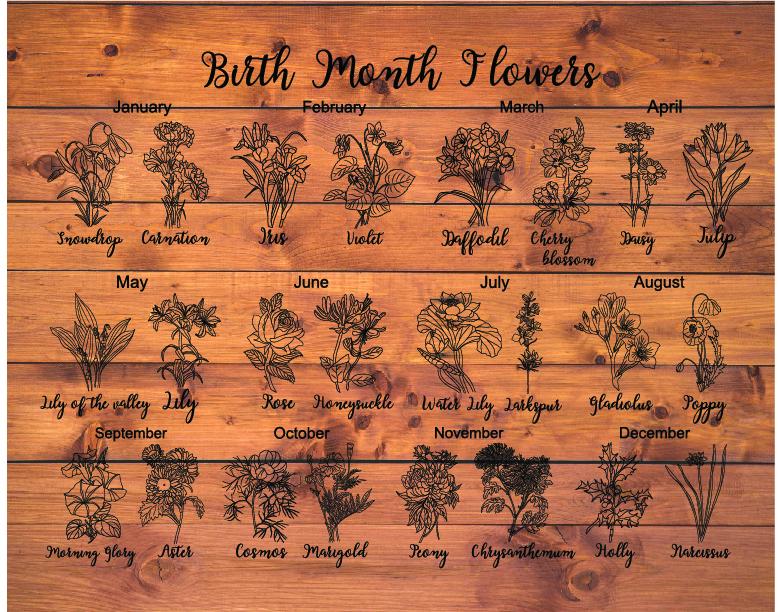 Birth Month Flowers
January February March April
Snowdrop Carnation Iris Violet Daffodil Cherry blossom Daisy Tulip
May June July August
Lily of the valley Lily Rose Honeysuckle Water Lily Larkspur Gladiolus Poppy
September October November December
Morning Glory Aster Cosmos Marigold Peony Chrysanthemum Holly Narcissus